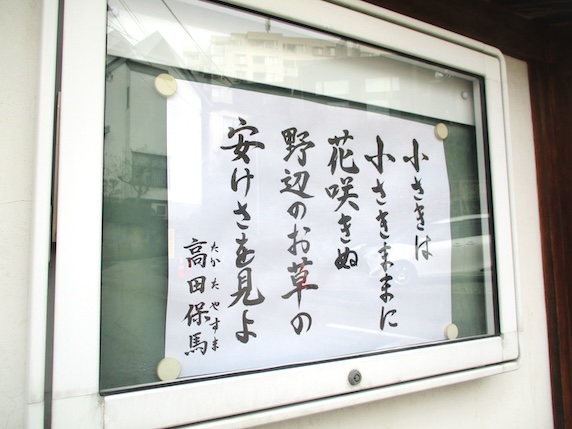 小さきは
小さきままに
花咲きぬ
野辺のお草の
安けさを見よ
高田保馬
たかたやすま